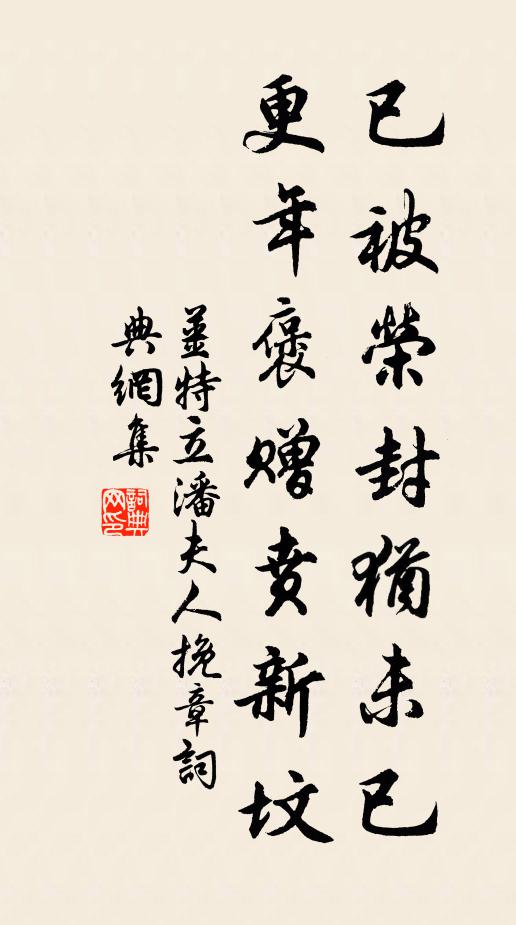 已被榮封猶未已
更年褒贈賁新墳
薑特立潘夫人挽章詞
典網集
詞典網印